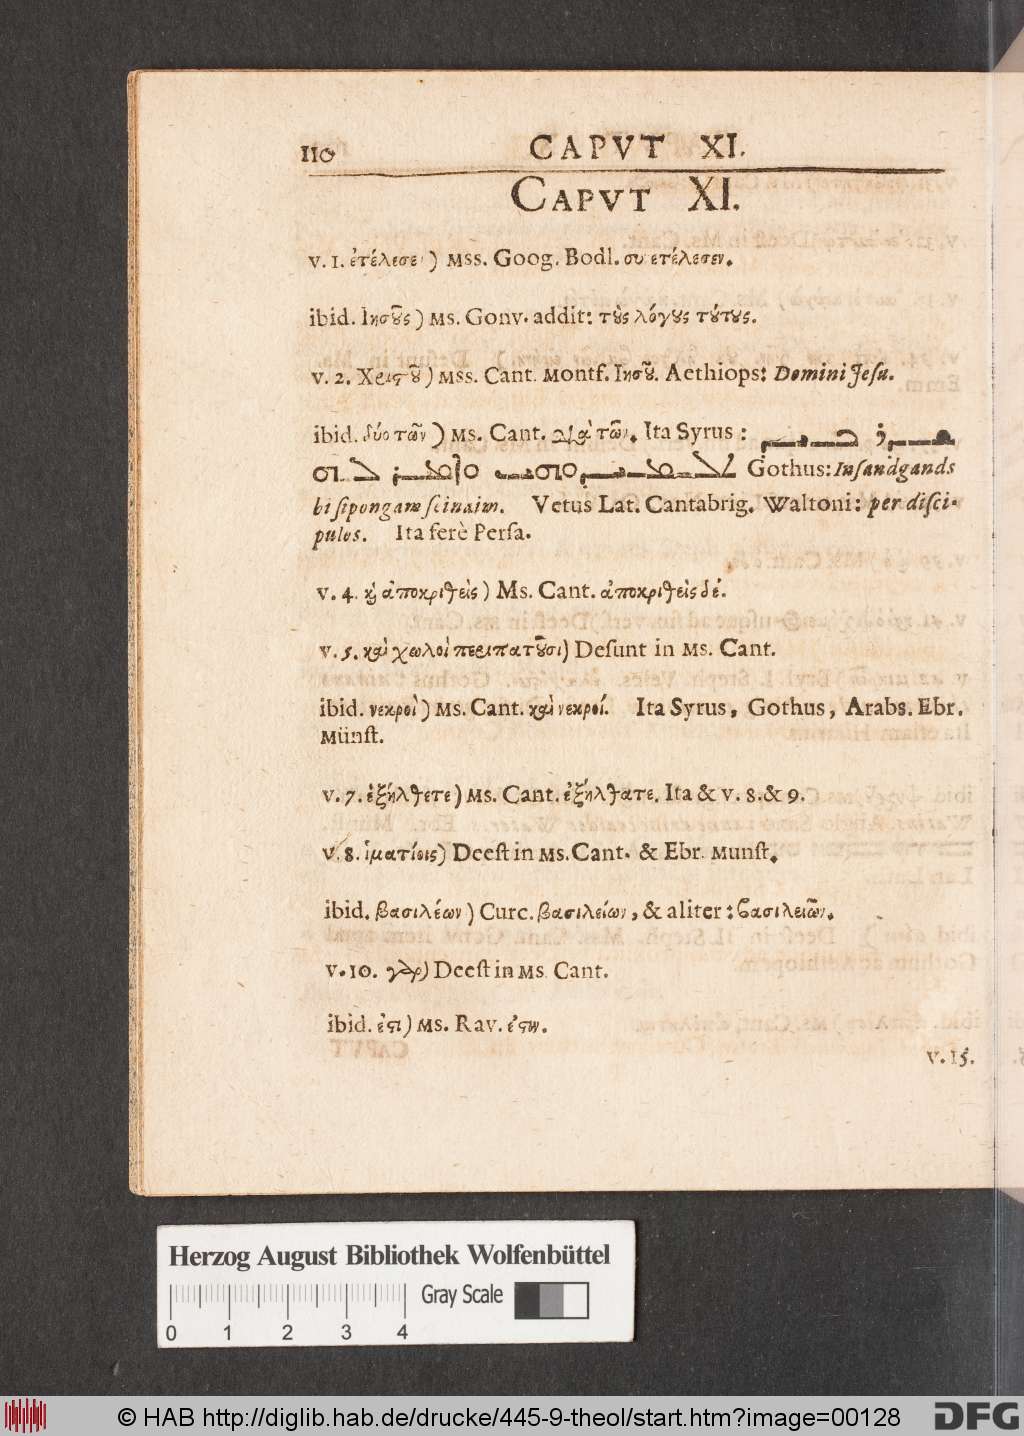 110 CAPVT XI.
CAPVT XI.
v. 1. ἐτέλεσε) Mss. Goog. Bodl. συ ετέλεσεν.
ibid. Ἰησοῦς) Ms. Gonv. addit: τοὺς λόγους τούτους.
v. 2. Χριστοῦ) Mss. Cant. Montf. Ἰησοῦ. Aethiops: Domini Jesu.
ibid. δύο τῶν) Ms. Cant. διὰ τῶν. Ita Syrus:
Gothus: Insandgands
bi siponjam seinaim. Vetus Lat. Cantabrig. Waltoni: per disci-
pulos. Ita ferè Persa.
v. 4. καὶ ἀποκριθεὶς) Ms. Cant. ἀποκριθεὶς δέ.
v. 5. καὶ χωλοὶ περιπατοῦσι) Desunt in Ms. Cant.
ibid. νεκροὶ) Ms. Cant. καὶ νεκροί. Ita Syrus, Gothus, Arabs. Ebr.
Münst.
v. 7. ἐξήλθετε) Ms. Cant. ἐξήλθατε. Ita & v. 8. & 9.
v. 8. ἱματίοις) Deest in Ms. Cant. & Ebr. Munst.
ibid. βασιλέων) Curc. βασιλείων, & aliter: βασιλειῶν.
v. 10. γὰρ) Deest in Ms Cant.
ibid. ἐστι) Ms. Rav. ἐστιν.
v. 15.
Herzog August Bibliothek Wolfenbüttel
Gray Scale
0 1 2 3 4
© HAB http://diglib.hab.de/drucke/445-9-theol/start.htm?image=00128
DFG